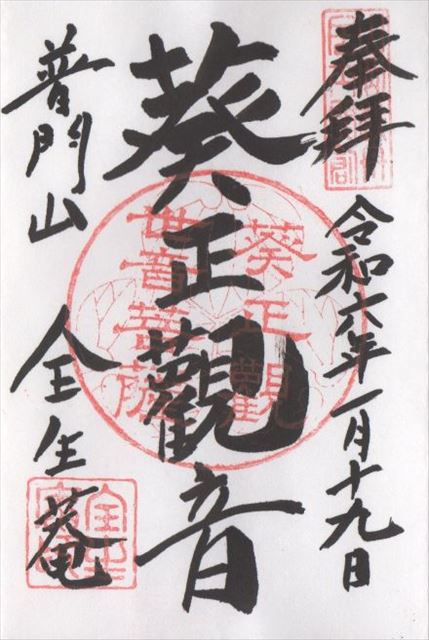 奉拝
令和六年一月十九日
葵正觀音
葵正觀
世音菩薩
普門山
全生菴